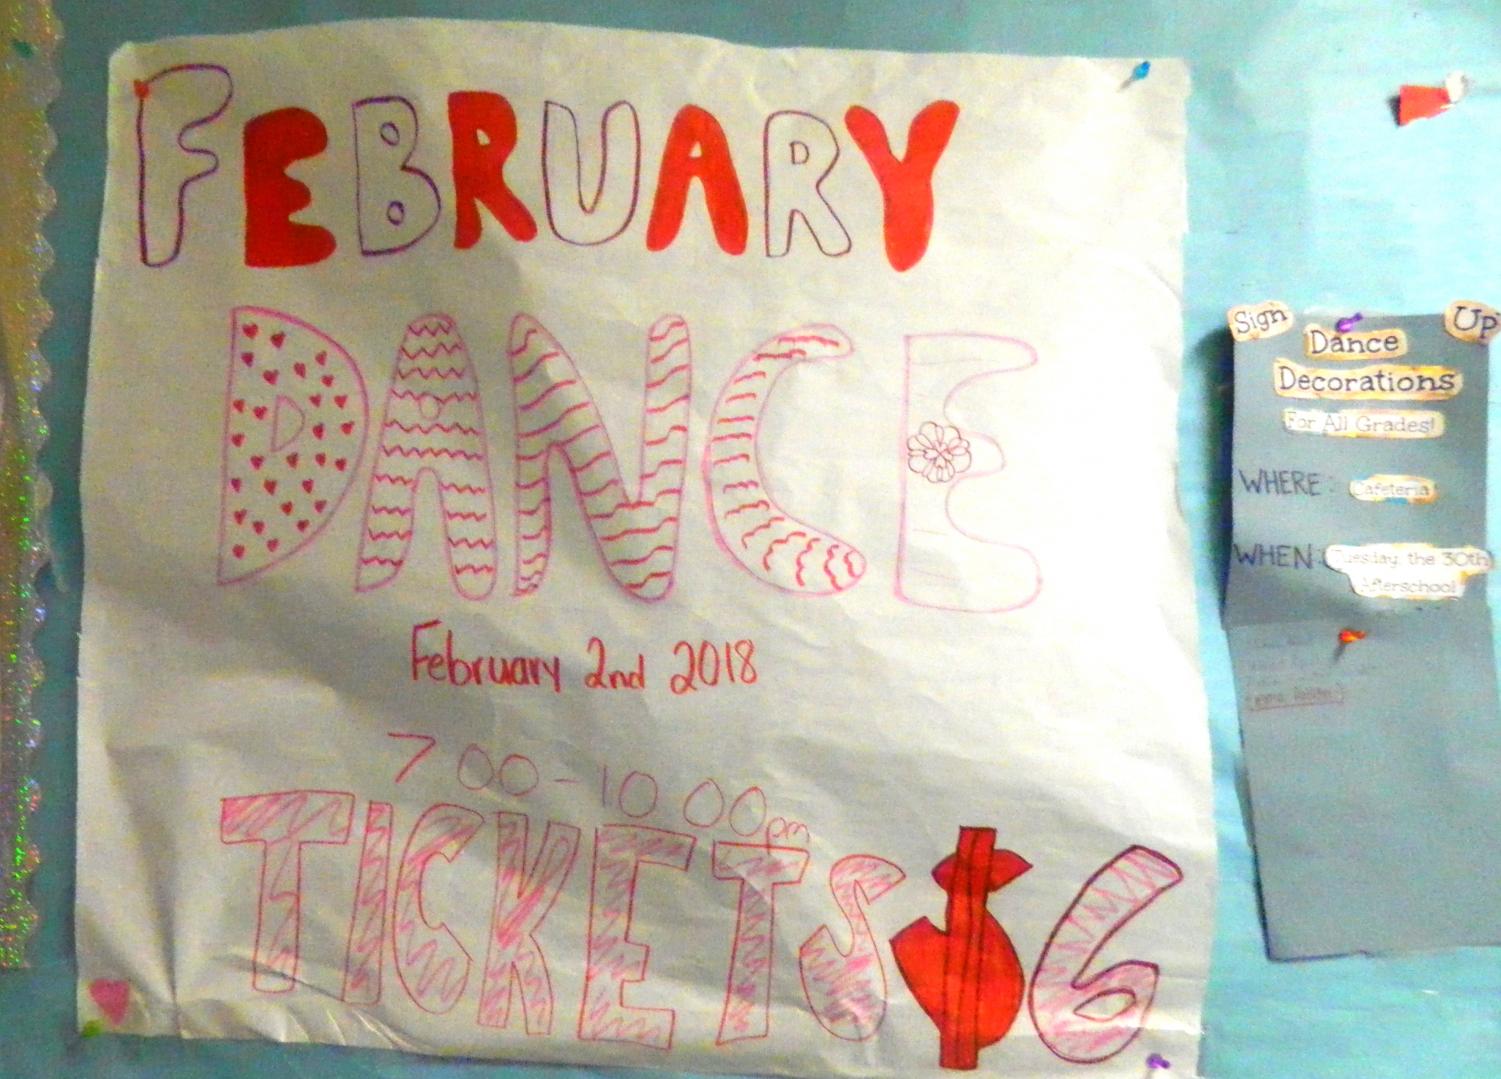 FEBRUARY
DANCE
February 2nd 2018
7 00 - 10 00 pm
TICKETS $6
Sign Up
Dance
Decorations
For All Grades!
WHERE: Cafeteria
WHEN: Tuesday, the 30th
Afterschool